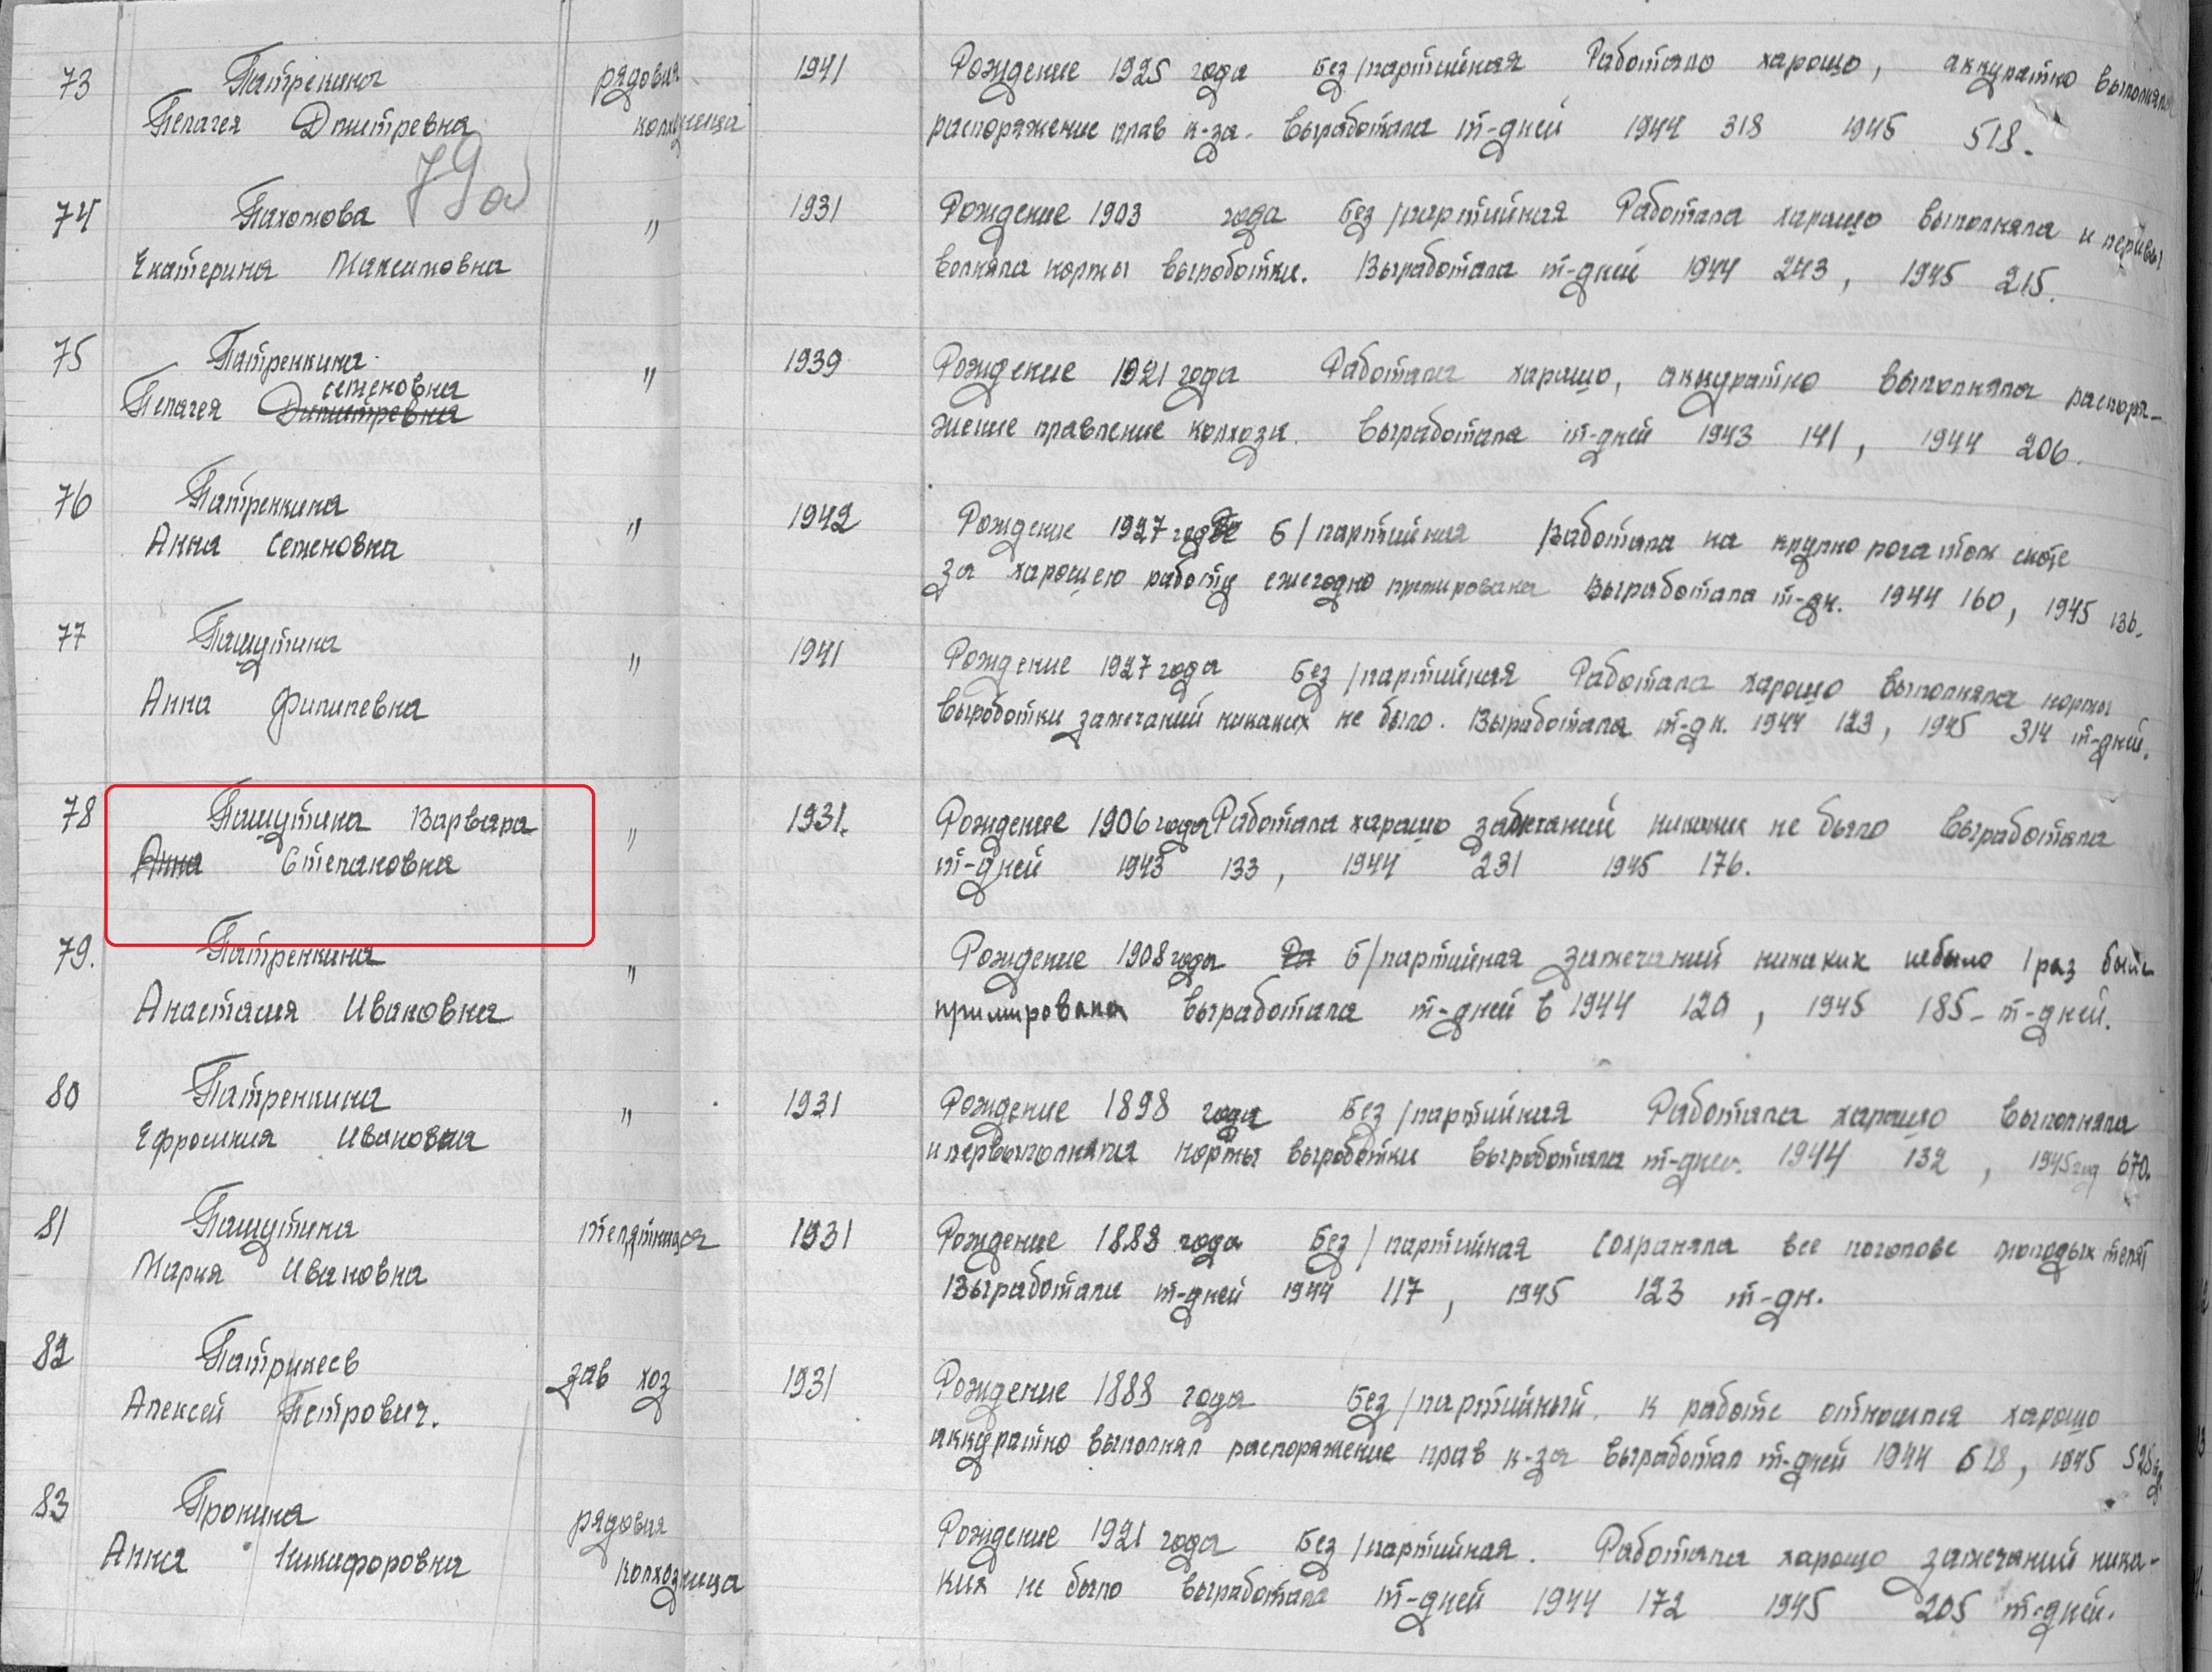 73 Патрекина рядовая 1941 Рождение 1925 года Без/партийная Работало харошо, аккуратно выполняла
Пелагея Дмитревна колхозница распоряжение прав к-за. Выработала т-дней 1944 318 1945 518.
79а
74 Пахомова " 1931 Рождение 1903 года Без/партийная Работала харашо выполняла и перевы
Екатерина Максимовна волняла нормы выработки. Выработала т-дней 1944 243, 1945 215.
75 Патренкина " 1939 Рождение 1921 года Работала харашо, аккуратно выполняла распоря-
семеновна
Пелагея Дмитревна жение правление колхоза. Выработала т-дней 1943 141, 1944 206.
76 Патренкина " 1942 Рождение 1927 года б/партийная работала на крупно рогатом скоте
Анна Семеновна за харошею работу ежегодно премирована Выработала т-дн. 1944 160, 1945 136.
77 Пашутина " 1941 Рождение 1927 года Без/партийная Работала харашо выполняла нормы
Анна Филиповна выроботки замечаний никаких не было. Выработала т-дн. 1944 123, 1945 314 т-дней.
78 Пашутина Варвара " 1931. Рождение 1906 года Работала харашо замечаний никаких не было выработала
Анна Степановна т-дней 1943 133, 1944 231 1945 176.
79. Патренкина " Рождение 1908 года Ра б/партийная замечаний никаких небыло 1 раз была
Анастасия Ивановна примирована выработала т-дней в 1944 120, 1945 185- т-дней.
80 Патренкина " 1931 Рождение 1898 года Без/партийная Работала харашо выполняла
Ефросиния Ивановна и первыполняла нормы выроботки выработала т-дней. 1944 132, 1945 год 670.
81 Пашутина телятница 1931 Рождение 1888 года Без/партийная Сохраняла все поголове молодых телят
Мария Ивановна Выработала т-дней 1944 117, 1945 123 т-дн.
82 Патрикеев зав хоз 1931 Рождение 1888 года Без/партийный. К работе относился харашо
Алексей Петрович. аккуратно выполнял распоряжение прав к-за выработал т-дней 1944 618, 1945
83 Пронина рядовая Рождение 1921 года Без/партийная. Работала харашо замечаний ника-
Анна Никифоровна колхозница ких не было выработала т-дней 1944 172 1945 205 т-дней.